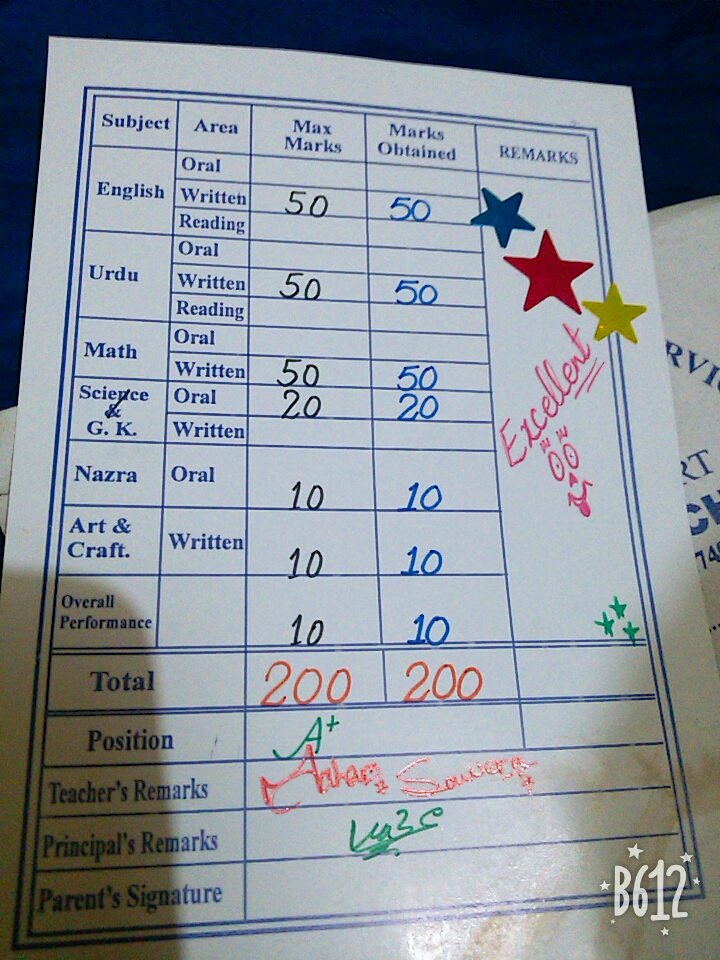 Subject Area Max Marks Marks Obtained REMARKS
English Oral
Written 50 50
Reading
Urdu Oral
Written 50 50
Reading
Math Oral
Written 50 50
Science & G. K. Oral 20 20
Written
Excellent
Nazra Oral 10 10
Art & Craft. Written 10 10
Overall Performance 10 10
Total 200 200
Position A+
Teacher's Remarks
Principal's Remarks
Parent's Signature
B612